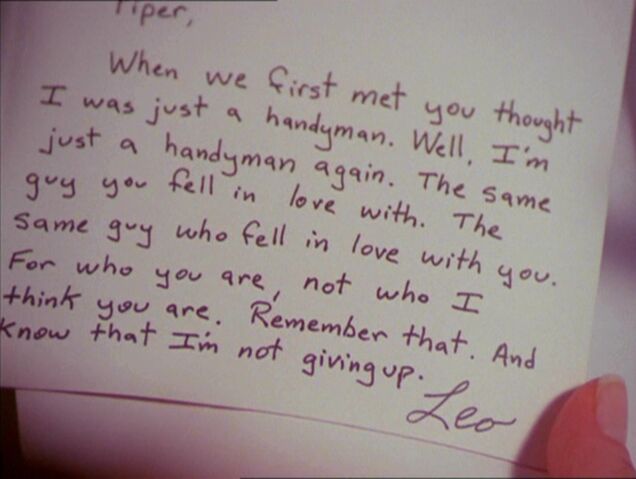 Piper,
When we first met you thought
I was just a handyman. Well, I'm
just a handyman again. The same
guy you fell in love with. The
same guy who fell in love with you.
For who you are, not who I
think you are. Remember that. And
know that I'm not giving up.
Leo